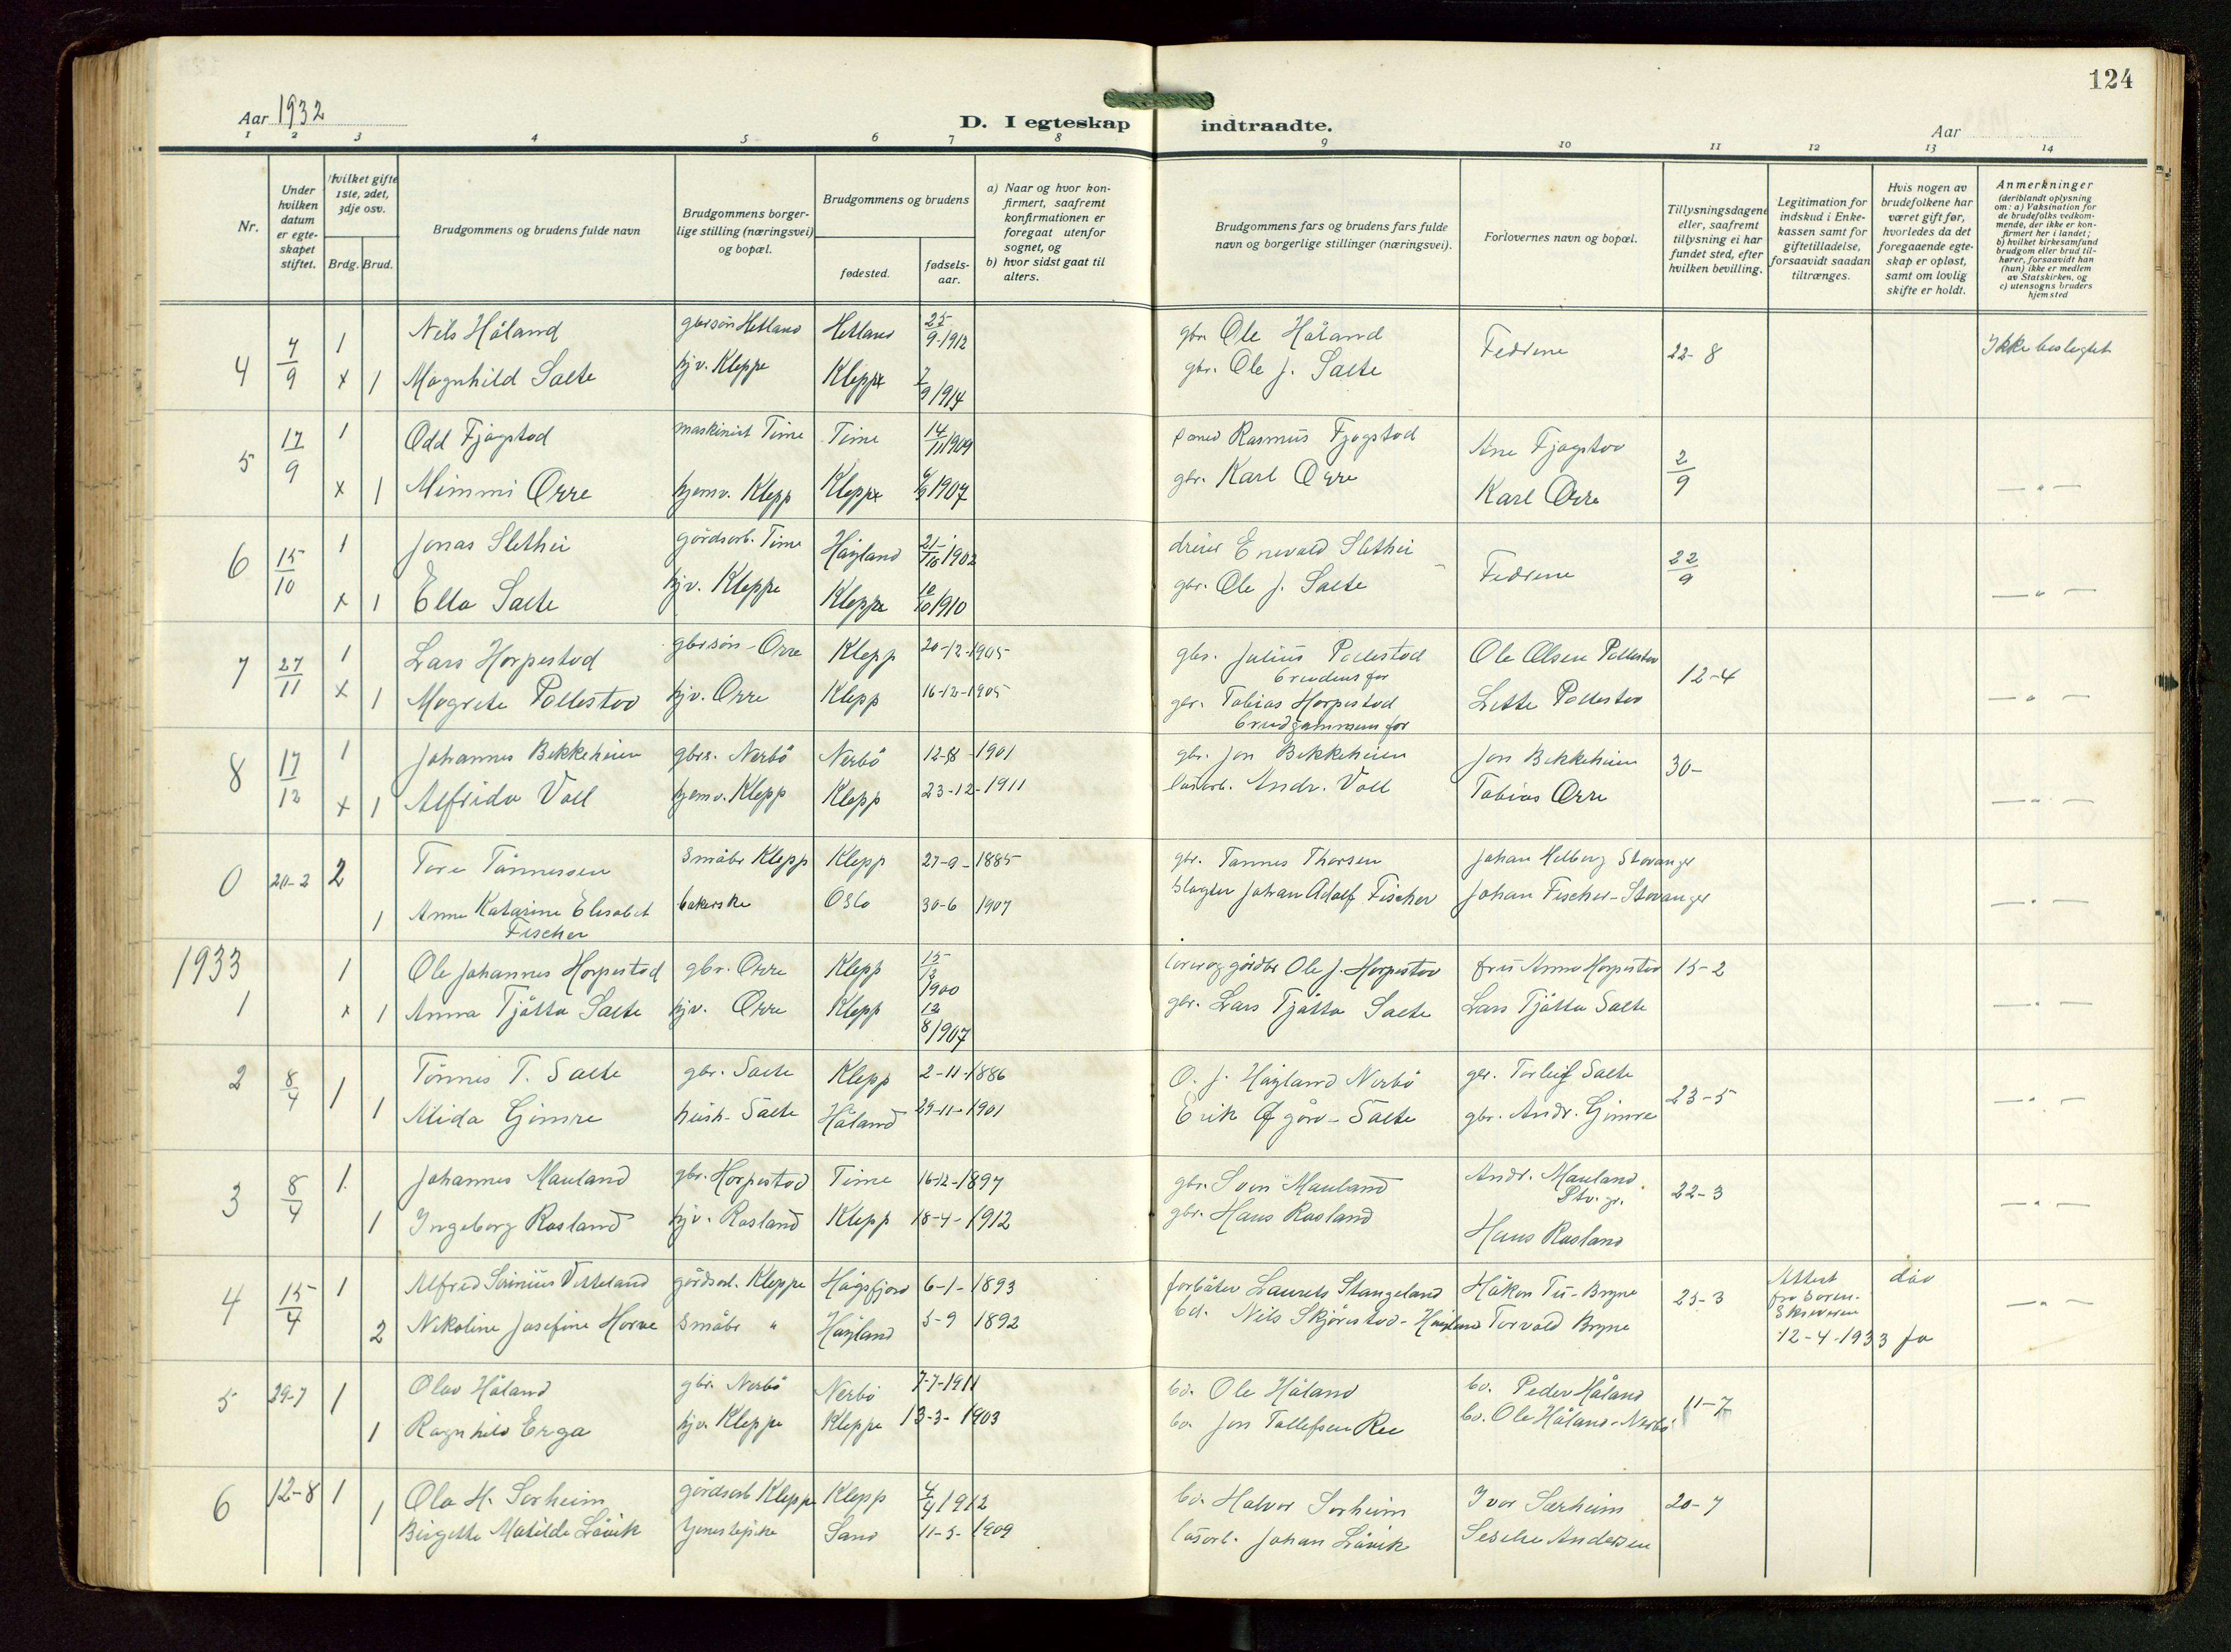 124
Aar 1932
D. I egteskap indtraadte.
Aar
1 2 3 4 5 6 7 8 9 10 11 12 13 14
Nr.
Under hvilken datum er egte- skapet stiftet.
Hvilket gifte 1ste, 2det, 3dje osv.
Brdg. Brud.
Brudgommens og brudens fulde navn
Brudgommens borger- lige stilling (næringsvei) og bopæl.
Brudgommens og brudens
fødested.
fødsels- aar.
a) Naar og hvor kon- firmert, saafremt konfirmationen er foregaat utenfor sognet, og
b) hvor sidst gaat til alters.
Brudgommens fars og brudens fars fulde navn og borgerlige stillinger (næringsvei).
Forlovernes navn og bopæl.
Tillysningsdagene eller, saafremt tillysning ei har fundet sted, efter hvilken bevilling.
Legitimation for indskud i Enke- kassen samt for giftetilladelse, forsaavidt saadan tiltrænges.
Hvis nogen av brudefolkene har været gift før, hvorledes da det foregaaende egte- skap er opløst, samt om lovlig skifte er holdt.
Anmerkninger (deriblandt oplysning om: a) Vaksination for de brudefolks vedkom- mende, der ikke er kon- firmert her i landet; b) hvilket kirkesamfund brudgom eller brud til- hører, forsaavidt han (hun) ikke er medlem av Statskirken, og c) utensogns bruders hjemsted
4 7/9 1 Nils Håland gbrsøn Hetland Hetland 25/9-1912 gbr Ole Håland Fedrene 22-8 Ikke beslegtet
x 1 Magnhild Salte hjv. Kleppe Kleppe 7/9 1914 gbr. Ole J. Salte
5 17/9 1 Odd Fjogstad maskinist Time Time 14/11 1909 Rasmus Fjogstad Ane Fjogstad 2/9 — " —
x 1 Mimmi Orre hjemv. Klepp Kleppe 1907 gbr. Karl Orre Karl Orre
6 15/10 1 Jonas Slethei gårdsarb. Time Høyland 21/10 1902 Enevald Slethei Fedrene 22/9 — " —
x 1 Ella Salte hjv. Kleppe Kleppe 10/10 1910 gbr. Ole J. Salte
7 27/11 1 Lars Horpestad gbrsøn - Orre Klepp 20-12-1905 gbr. Julius Pollestad Ole Olsen Pollestad 12-4 — " —
brudens far
x 1 Magrete Pollestad hjv. Orre Klepp 16-12-1905 gbr. Tobias Horpestad Lette Pollestad
brudgommens far
8 17/12 1 Johannes Bekkeheien gbrs. Nerbö Nerbö 12-8-1901 gbr. Jon Bekkeheien Jon Bekkeheien 30- — " —
x 1 Alfrida Voll hjemv. Klepp Klepp 23-12-1911 Andr. Voll Tobias Orre
0 20-2 2 Tore Tönnessen Småbr Klepp Klepp 27-9-1885 gbr. Tønnes Thorsen Johan Helberg Stavanger
1 Anna Katarine Elisabet Oslo 30-6 1907 Slagter Johan Adolf Fischer Johan Fischer - Stavanger — " —
Fischer
1933
1 1 Ole Johannes Horpestad gbr. Orre Klepp 15/12 1900 gårdbr Ole J. Horpestad fru Anna Horpestad 15-2 — " —
x 1 Anna Tjåtta Salte hjv. Orre Klepp 12/8 1907 gbr. Lars Tjåtta Salte Lars Tjåtta Salte
2 8/4 1 Tönnes T. Salte gbr. Salte Klepp 2-11-1886 O. J. Høyland Nerbö gbr. Torleif Salte 23-5 — " —
1 Alida Gimre hush. Salte Håland 29-11-1901 Erik - Salte gbr. Andr. Gimre
3 8/4 1 Johannes Mauland gbr. Horpestad Time 16-12-1897 gbr. Sven Mauland Andr. Mauland 22-3 — " —
Stv. gr.
1 Ingeborg Rosland hjv. Rosland Klepp 18-4-1912 gbr. Hans Rosland Hans Rosland
4 15/4 1 Alfred Serinius Vetteland gårdsarb. Kleppe Høgsfjord 6-1-1893 Laurets Stangeland Håkon Tu - Bryne 25-3 Attest død — " —
fra Soren-
Skriveren
2 Nikoline Josefine Horve Småbr " Høyland 5-9 1892 bd. Nils Skjørestad - Høyland Torvald Bryne 12-4-1933 Ja
5 29-7 1 Olav Håland gbr. Nerbö Nerbö 7-7-1911 bd. Ole Håland bd. Peder Håland 11-7
1 Ragnhild Erga hjv. Kleppe Kleppe 13-3-1903 bd. Jon Tollefsen Ree bd. Ole Håland - Nerbö
6 12-8 1 Ola H. Serheim gårdsarb Kleppe Klepp 4/4 1912 bd. Halvor Serheim Ivar Særheim 20-7
1 Birgitte Matilde Låvik tjenestepike Sand 11-5-1909 Johan Låvik Andersen